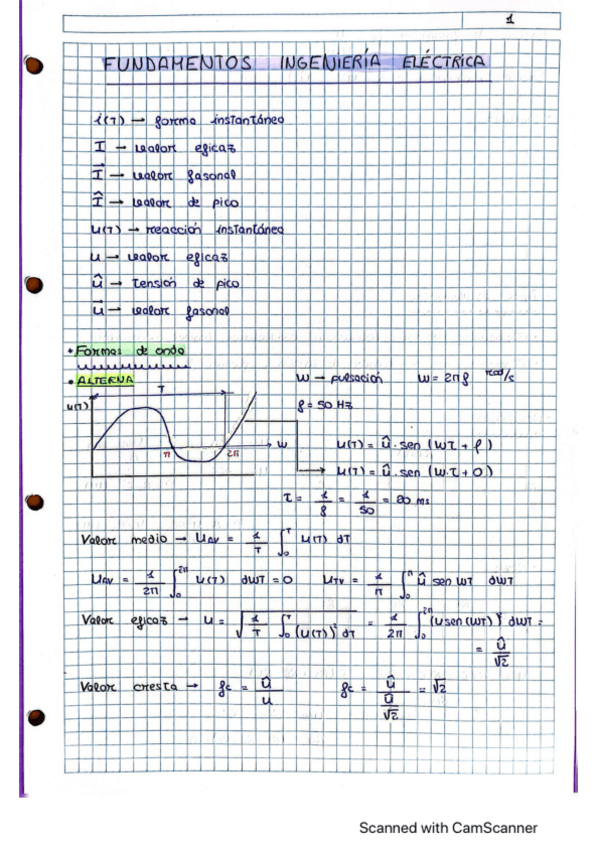 1
FUNDAMENTOS INGENIERÍA ELÉCTRICA
i(T) → forma instantáneo
I → valor eficaz
I⃗ → valor fasorial
Î → valor de pico
u(T) → reacción instantánea
u → valor eficaz
û → Tensión de pico
u⃗ → valor fasorial
• Formas de onda
• ALTERNA
T
W → pulsación W = 2πf rad/s
u(T)
f = 50 Hz
W
π 2π
u(T) = û · sen (Wτ + φ)
u(T) = û · sen (W·τ + 0)
τ = 1/f = 1/50 = 20 ms
Valor medio → U_AV = 1/T ∫₀^T u(T) dT
U_AV = 1/2π ∫₀^2π u(T) dWT = 0 U_TV = 1/π ∫₀^π û sen WT dWT
Valor eficaz → u = √(1/T ∫₀^T (u(T))² dT) = 1/2π ∫₀^2π (u sen (WT))² dWT =
= û/√2
Valor cresta → fc = û/u fc = û/(û/√2) = √2
Scanned with CamScanner